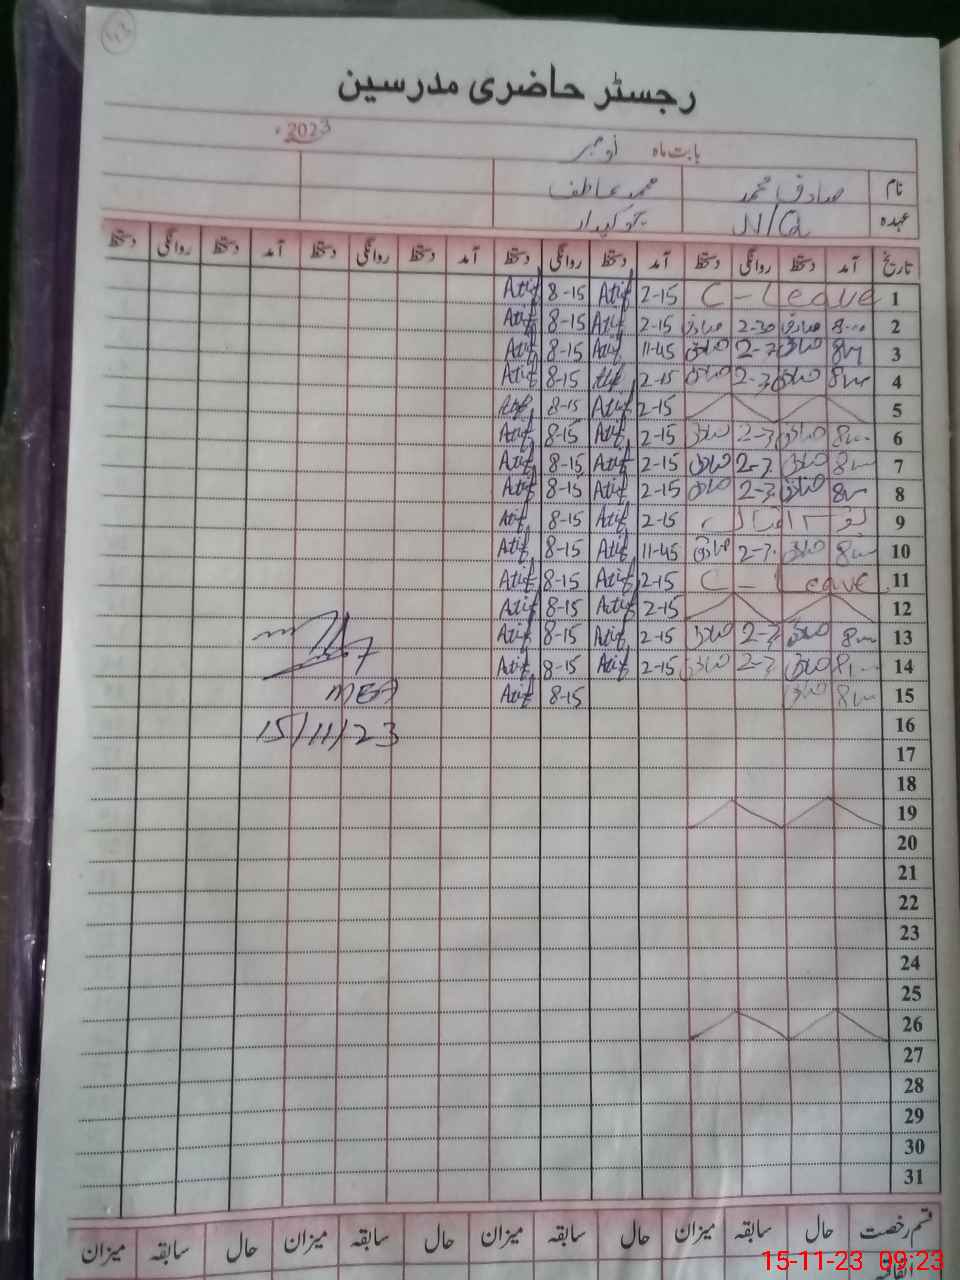 رجسٹر حاضری مدرسین
2023ء
بابت ماہ نومبر
نام صادق محمد محمد عاطف
عہدہ N/Q چوکیدار
تاریخ آمد دستخط روانگی دستخط آمد دستخط روانگی دستخط آمد دستخط روانگی دستخط آمد دستخط روانگی دستخط
1 C - Leave 2-15 Atif 8-15 Atif
2 8-00 صادق 2-30 صادق 2-15 Atif 8-15 Atif
3 صادق صادق 11-45 Atif 8-15 Atif
4 صادق صادق 2-15 Atif 8-15 Atif
5 2-15 Atif 8-15 Atif
6 صادق صادق 2-15 Atif 8-15 Atif
7 صادق صادق 2-15 Atif 8-15 Atif
8 صادق صادق 2-15 Atif 8-15 Atif
9 2-15 Atif 8-15 Atif
10 صادق صادق 11-45 Atif 8-15 Atif
11 C - Leave 2-15 Atif 8-15 Atif
12 2-15 Atif 8-15 Atif
13 صادق صادق 2-15 Atif 8-15 Atif
14 صادق صادق 2-15 Atif 8-15 Atif
15 صادق 8-15 Atif
MEA
15/11/23
16
17
18
19
20
21
22
23
24
25
26
27
28
29
30
31
قسم رخصت حال سابقہ میزان حال سابقہ میزان حال سابقہ میزان حال سابقہ میزان
15-11-23 09:23